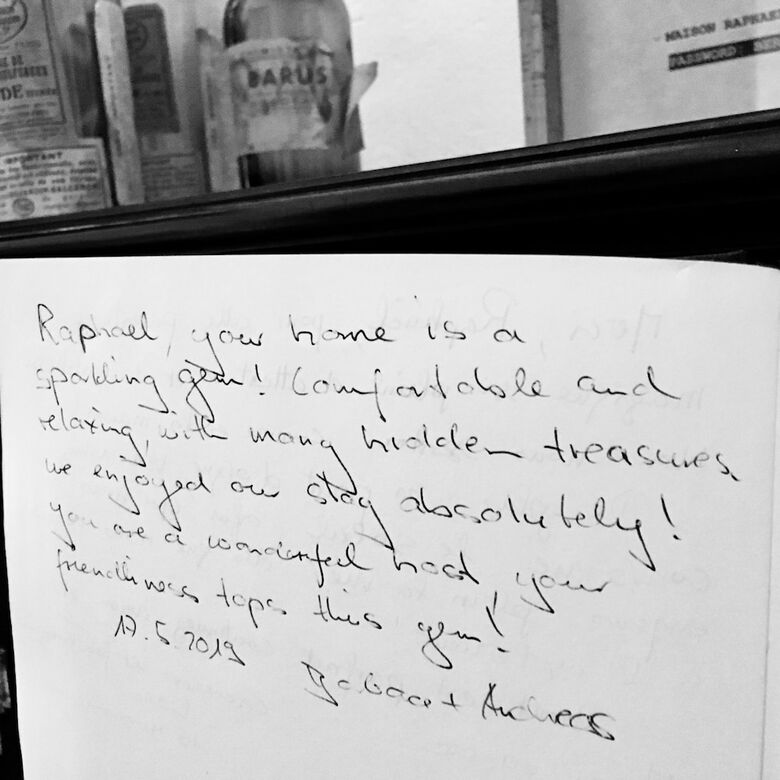 BARUS
MAISON RAPHAE
PASSWORD:
IMPORTANT
Raphael, your home is a
sparkling gem! Comfortable and
relaxing, with many hidden treasures,
we enjoyed our stay absolutely!
you are a wonderful host, your
friendliness tops this gem!
17.5.2019
+ Andreas